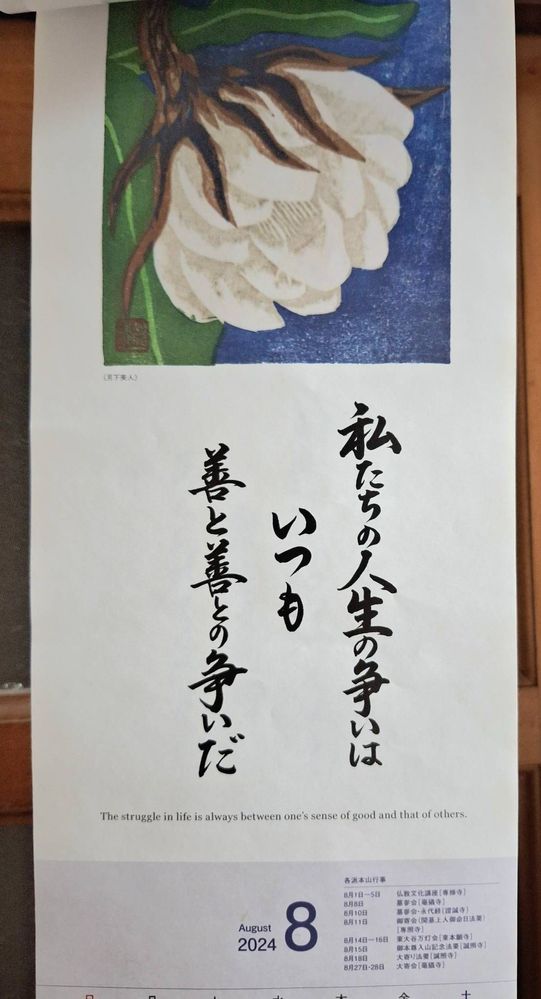 （月下美人）
私たちの人生の争いは
いつも
善と善との争いだ
The struggle in life is always between one's sense of good and that of others.
August
2024
8
各派本山行事
8月1日―5日 仏教文化講座［専修寺］
8月8日 墓参会［毫攝寺］
8月10日 墓参会・永代経［證誠寺］
8月11日 御寄会（開基上人御命日法要）
［専照寺］
8月14日―16日 東大谷万灯会［東本願寺］
8月15日 御本尊入山記念法要［誠照寺］
8月18日 大寄り法要［誠照寺］
8月27日-28日 大寄会［毫攝寺］
日 月 火 水 木 金 土